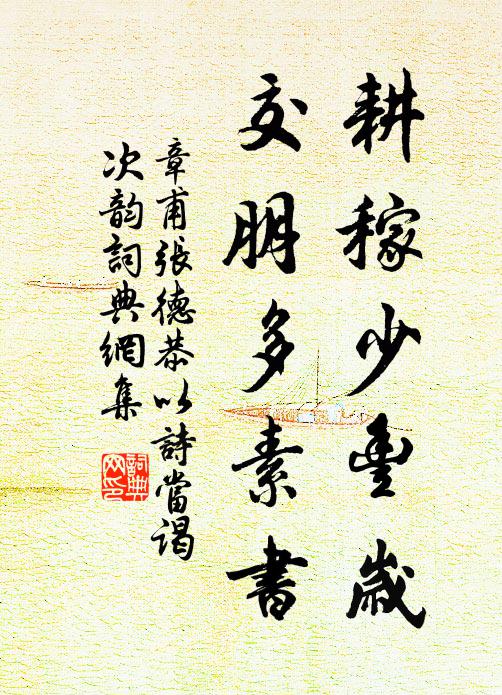 耕稼少豐歲
交朋多素書
章甫張德恭以詩當谒
次韵詞典網集
詞典
网印